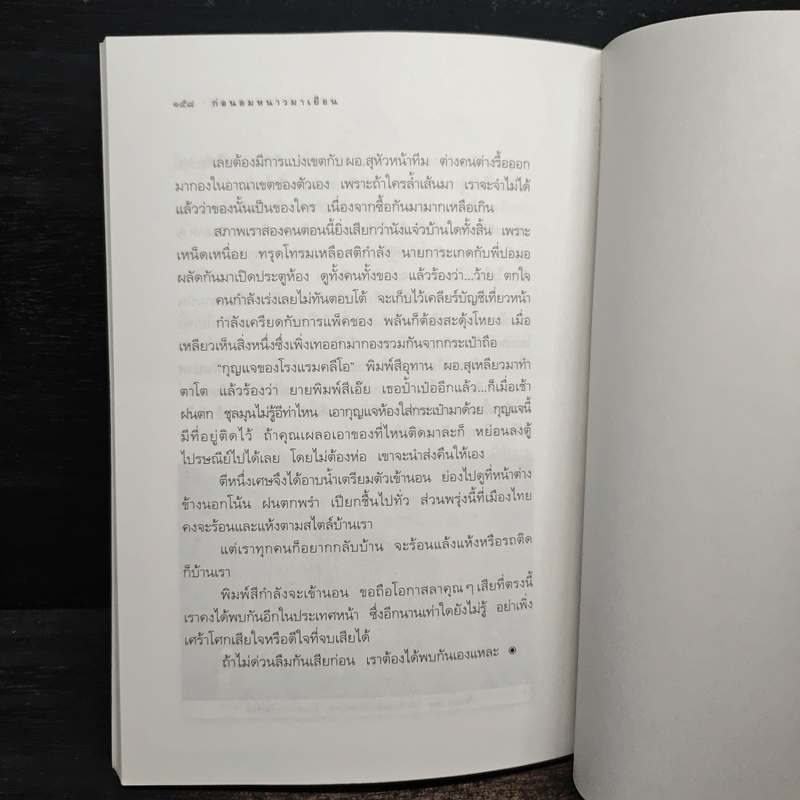 ๑๕๘ ก่อนลมหนาวมาเยือน
เลยต้องมีการแบ่งเขตกับ ผอ.สุหัวหน้าทีม ต่างคนต่างรื้อออก
มากองในอาณาเขตของตัวเอง เพราะถ้าใครล้ำเส้นมา เราจะจำไม่ได้
แล้วว่าของนั้นเป็นของใคร เนื่องจากซื้อกันมามากเหลือเกิน
สภาพเราสองคนตอนนี้ยิ่งเสียกว่านังแจ๋วบ้านใดทั้งสิ้น เพราะ
เหน็ดเหนื่อย ทรุดโทรมเหลือสติกำลัง นายการะเกดกับพี่ปอมอ
ผลัดกันมาเปิดประตูห้อง ดูทั้งคนทั้งของ แล้วร้องว่า...ว้าย ตกใจ
คนกำลังเร่งเลยไม่ทันตอบโต้ จะเก็บไว้เคลียร์บัญชีเที่ยวหน้า
กำลังเครียดกับการแพ็คของ พลันก็ต้องสะดุ้งโหยง เมื่อ
เหลียวเห็นสิ่งหนึ่งซึ่งเพิ่งเทออกมากองรวมกันจากกระเป๋าถือ
“กุญแจของโรงแรมคลีโอ” พิมพ์สีอุทาน ผอ.สุเหลียวมาทำ
ตาโต แล้วร้องว่า ยายพิมพ์สีเอ๊ย เธอป้ำเป๋ออีกแล้ว...ก็เมื่อเช้า
ฝนตก ชุลมุนไม่รู้อีท่าไหน เอากุญแจห้องใส่กระเป๋ามาด้วย กุญแจนี้
มีที่อยู่ติดไว้ ถ้าคุณเผลอเอาของที่ไหนติดมาละก็ หย่อนลงตู้
ไปรษณีย์ไปได้เลย โดยไม่ต้องห่อ เขาจะนำส่งคืนให้เอง
ตีหนึ่งเศษจึงได้อาบน้ำเตรียมตัวเข้านอน ย่องไปดูที่หน้าต่าง
ข้างนอกโน้น ฝนตกพรำ เปียกชื้นไปทั่ว ส่วนพรุ่งนี้ที่เมืองไทย
คงจะร้อนและแห้งตามสไตล์บ้านเรา
แต่เราทุกคนก็อยากกลับบ้าน จะร้อนแล้งแห้งหรือรถติด
ก็บ้านเรา
พิมพ์สีกำลังจะเข้านอน ขอถือโอกาสลาคุณ ๆ เสียที่ตรงนี้
เราคงได้พบกันอีกในประเทศหน้า ซึ่งอีกนานเท่าใดยังไม่รู้ อย่าเพิ่ง
เศร้าโศกเสียใจหรือดีใจที่จบเสียได้
ถ้าไม่ด่วนลืมกันเสียก่อน เราต้องได้พบกันเองแหละ ◉